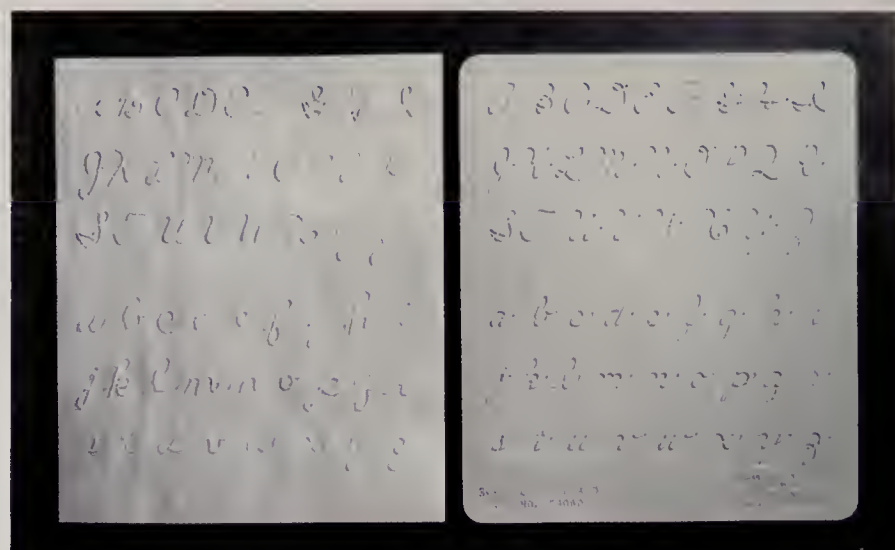 A B C D E F G H I
J K L M N O P Q R
S T U V W X Y Z
a b c d e f g h i
j k l m n o p q r
s t u v w x y z
A B C D E F G H I
J K L M N O P Q R
S T U V W X Y Z
a b c d e f g h i
j k l m n o p q r
s t u v w x y z